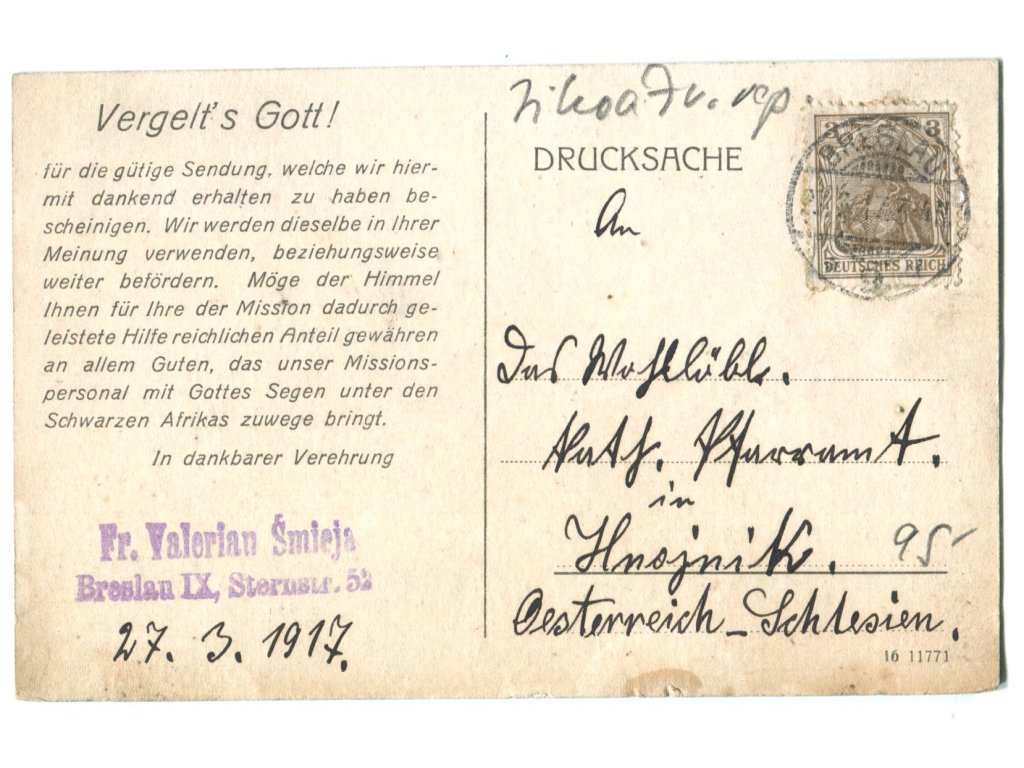 Vergelt's Gott!
für die gütige Sendung, welche wir hier-
mit dankend erhalten zu haben be-
scheinigen. Wir werden dieselbe in Ihrer
Meinung verwenden, beziehungsweise
weiter befördern. Möge der Himmel
Ihnen für Ihre der Mission dadurch ge-
leistete Hilfe reichlichen Anteil gewähren
an allem Guten, das unser Missions-
personal mit Gottes Segen unter den
Schwarzen Afrikas zuwege bringt.
In dankbarer Verehrung
Fr. Valerian Śmieja
Breslau IX, Sternstr. 52
27. 3. 1917.
DRUCKSACHE
3 3
BRESLAU
DEUTSCHES REICH
An
Das Wohllöbl.
kath. Pfarramt.
in
Hnojnik.
95-
Oesterreich-Schlesien.
16 11771